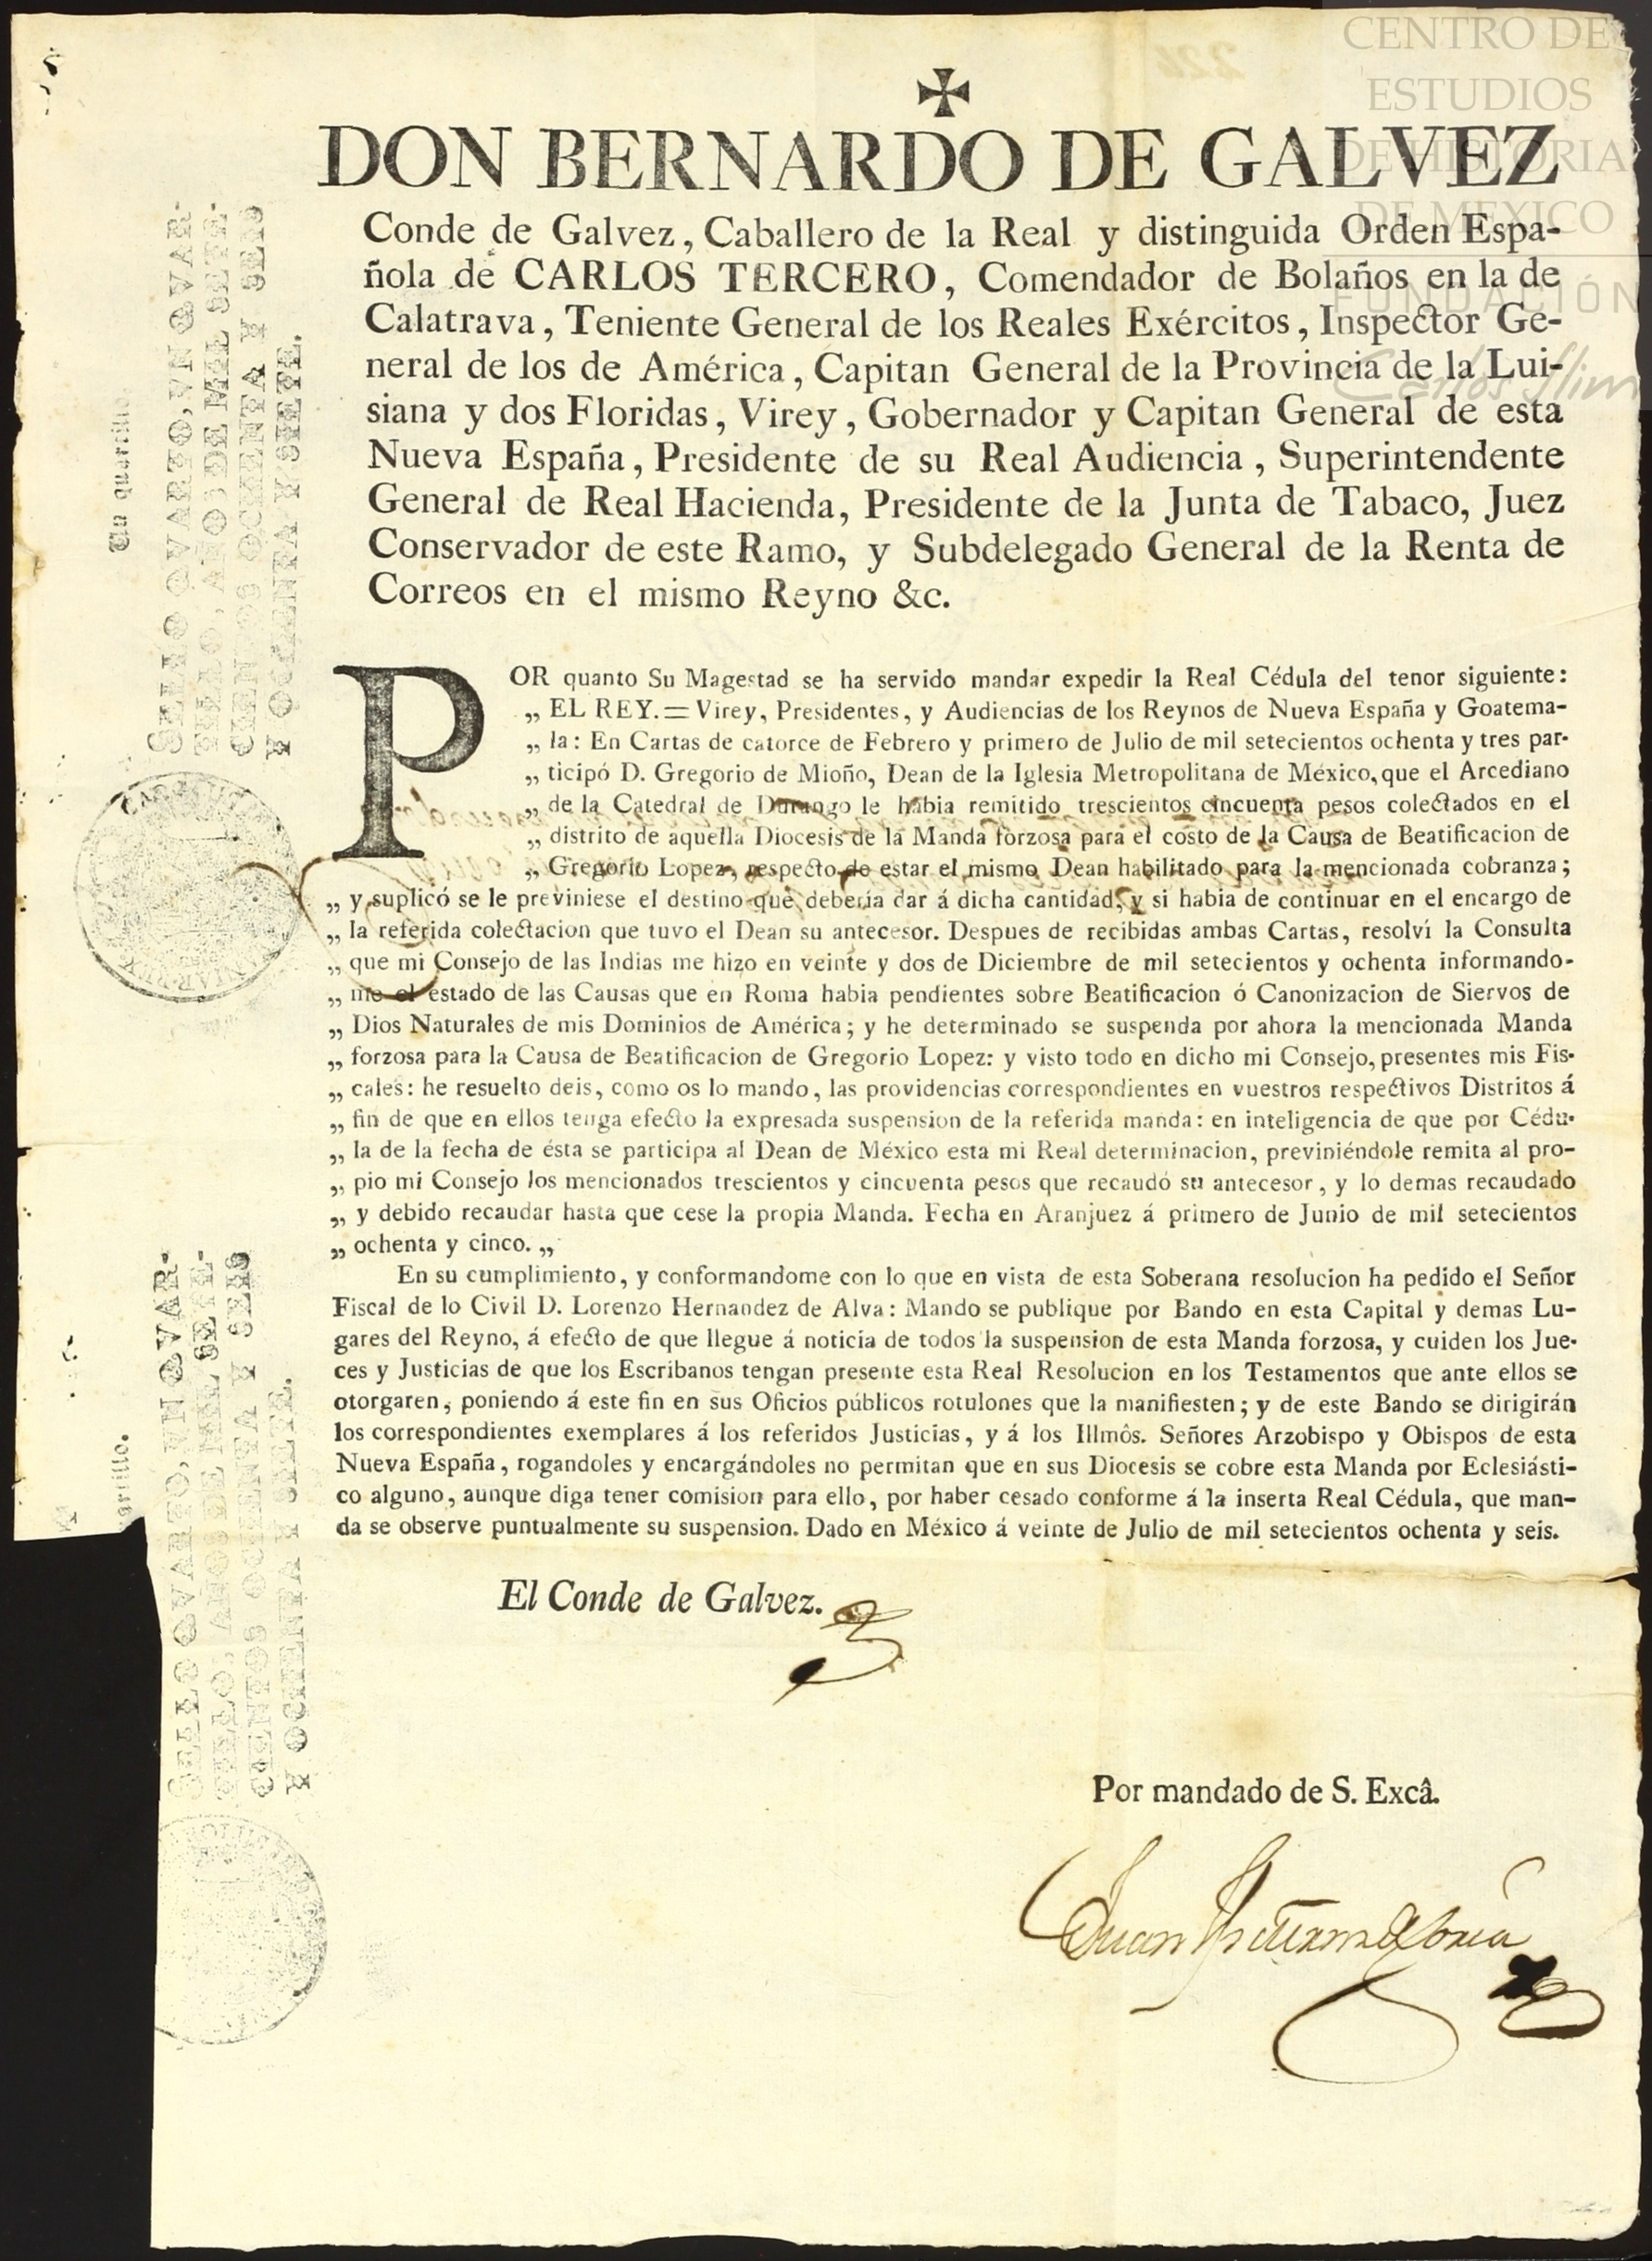 CENTRO DE
ESTUDIOS
DE HISTORIA
DE MEXICO
FUNDACIÓN
Carlos Slim
DON BERNARDO DE GALVEZ
Conde de Galvez, Caballero de la Real y distinguida Orden Espa-
ñola de CARLOS TERCERO, Comendador de Bolaños en la de
Calatrava, Teniente General de los Reales Exércitos, Inspector Ge-
neral de los de América, Capitan General de la Provincia de la Lui-
siana y dos Floridas, Virey, Gobernador y Capitan General de esta
Nueva España, Presidente de su Real Audiencia, Superintendente
General de Real Hacienda, Presidente de la Junta de Tabaco, Juez
Conservador de este Ramo, y Subdelegado General de la Renta de
Correos en el mismo Reyno &c.
POR quanto Su Magestad se ha servido mandar expedir la Real Cédula del tenor siguiente:
„ EL REY.=Virey, Presidentes, y Audiencias de los Reynos de Nueva España y Goatema-
„ la: En Cartas de catorce de Febrero y primero de Julio de mil setecientos ochenta y tres par-
„ ticipó D. Gregorio de Mioño, Dean de la Iglesia Metropolitana de México, que el Arcediano
„ de la Catedral de Durango le habia remitido trescientos cincuenta pesos colectados en el
„ distrito de aquella Diocesis de la Manda forzosa para el costo de la Causa de Beatificacion de
„ Gregorio Lopez, respecto de estar el mismo Dean habilitado para la mencionada cobranza;
„ y suplicó se le previniese el destino que deberia dar á dicha cantidad, y si habia de continuar en el encargo de
„ la referida colectacion que tuvo el Dean su antecesor. Despues de recibidas ambas Cartas, resolví la Consulta
„ que mi Consejo de las Indias me hizo en veinte y dos de Diciembre de mil setecientos y ochenta informando-
„ me el estado de las Causas que en Roma habia pendientes sobre Beatificacion ó Canonizacion de Siervos de
„ Dios Naturales de mis Dominios de América; y he determinado se suspenda por ahora la mencionada Manda
„ forzosa para la Causa de Beatificacion de Gregorio Lopez: y visto todo en dicho mi Consejo, presentes mis Fis-
„ cales: he resuelto deis, como os lo mando, las providencias correspondientes en vuestros respectivos Distritos á
„ fin de que en ellos tenga efecto la expresada suspension de la referida manda: en inteligencia de que por Cédu-
„ la de la fecha de ésta se participa al Dean de México esta mi Real determinacion, previniéndole remita al pro-
„ pio mi Consejo los mencionados trescientos y cincuenta pesos que recaudó su antecesor, y lo demas recaudado
„ y debido recaudar hasta que cese la propia Manda. Fecha en Aranjuez á primero de Junio de mil setecientos
„ ochenta y cinco. „
En su cumplimiento, y conformandome con lo que en vista de esta Soberana resolucion ha pedido el Señor
Fiscal de lo Civil D. Lorenzo Hernandez de Alva: Mando se publique por Bando en esta Capital y demas Lu-
gares del Reyno, á efecto de que llegue á noticia de todos la suspension de esta Manda forzosa, y cuiden los Jue-
ces y Justicias de que los Escribanos tengan presente esta Real Resolucion en los Testamentos que ante ellos se
otorgaren, poniendo á este fin en sus Oficios públicos rotulones que la manifiesten; y de este Bando se dirigirán
los correspondientes exemplares á los referidos Justicias, y á los Illmôs. Señores Arzobispo y Obispos de esta
Nueva España, rogandoles y encargándoles no permitan que en sus Diocesis se cobre esta Manda por Eclesiásti-
co alguno, aunque diga tener comision para ello, por haber cesado conforme á la inserta Real Cédula, que man-
da se observe puntualmente su suspension. Dado en México á veinte de Julio de mil setecientos ochenta y seis.
El Conde de Galvez.
Por mandado de S. Excâ.
Un quartillo.
SELLO QVARTO, VN QVAR-
TILLO, AÑOS DE MIL SETE-
CIENTOS OCHENTA Y SEIS
Y OCHENTA Y SIETE.
artillo.
SELLO QVARTO, VN QVAR-
TILLO, AÑOS DE MIL SETE-
CIENTOS OCHENTA Y SEIS
Y OCHENTA Y SIETE.